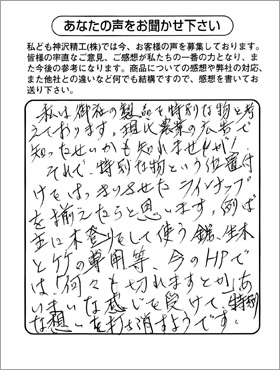 あなたの声をお聞かせ下さい
私ども神沢精工(株)では今、お客様の声を募集しております。
皆様の率直なご意見、ご感想が私たちの一番の力となり、ま
た今後の参考になります。商品についての感想や弊社の対応、
また他社との違いなど何でも結構ですので、感想を書いてお
送り下さい。
私は御社の製品を特別な物と考
えております。現代農業の広告で
知ったせいかも知れませんが!
それで、特別な物という位置付
けをはっきりさせたラインナップ
を揃えたらと思います。例ば
主に木登りをして使う鋸、生木
と竹の専用等、今のHPで
は「何々も切れますとか」あ
いまいな感じを受けて、特別
な想いを打ち消すようです。